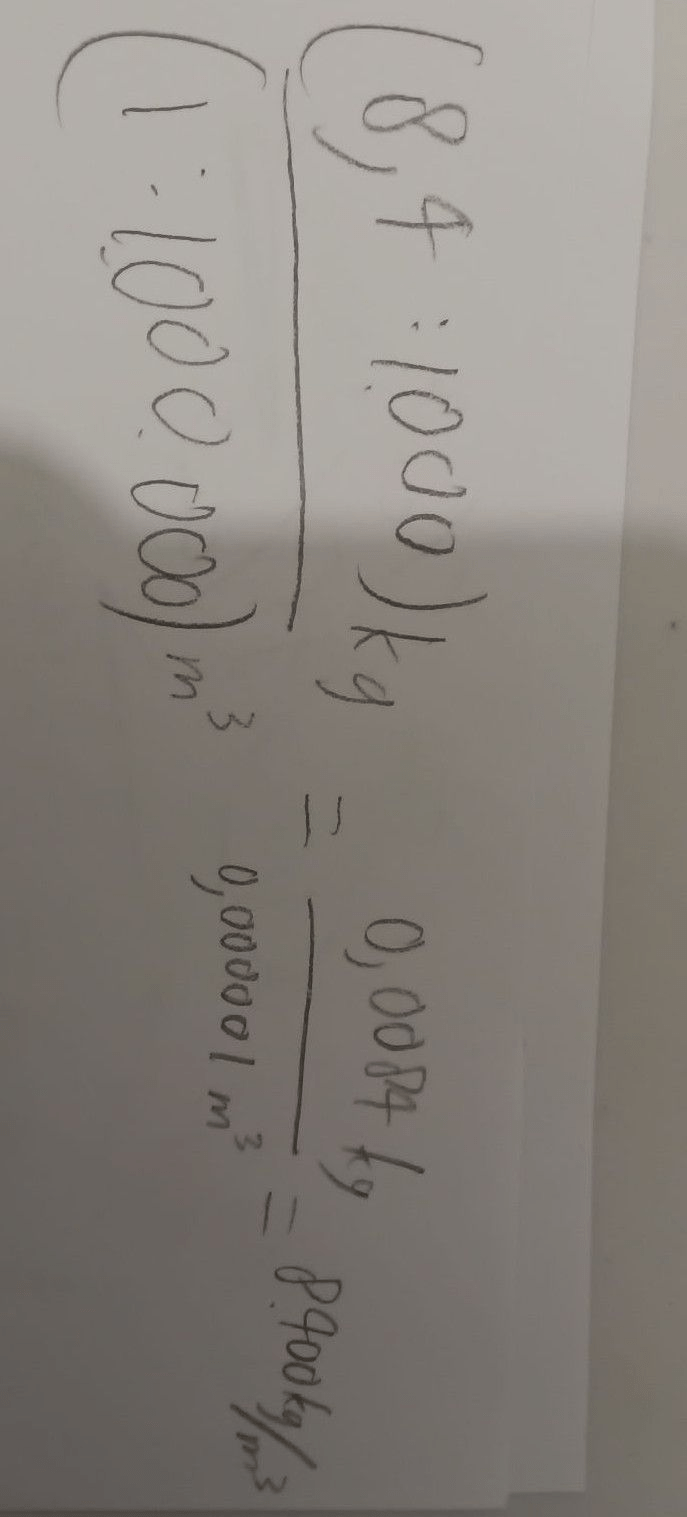 (8,4 : 1.000) kg
(1 : 1.000.000) m³
=
0,0084 kg
0,000001 m³
= 8.400 kg/m³